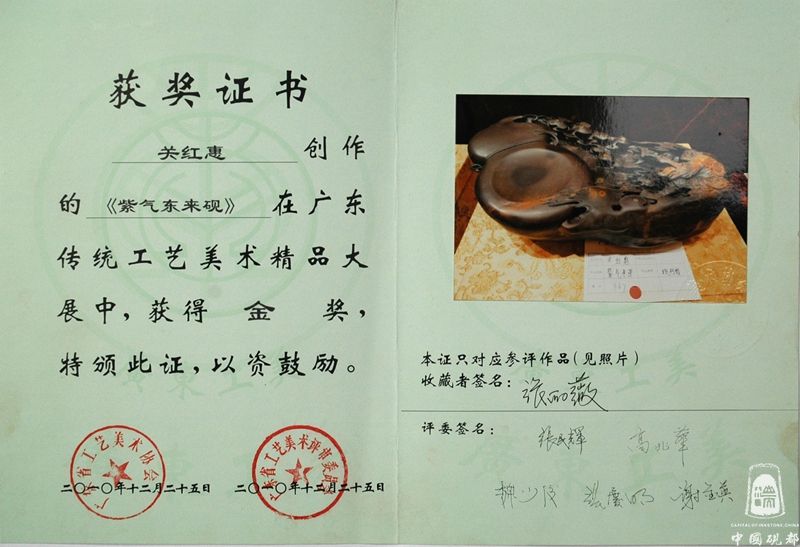 获奖证书
关红惠 创作
的《紫气东来砚》在广东
传统工艺美术精品大
展中，获得 金 奖，
特颁此证，以资鼓励。
广东省工艺美术协会
二〇一〇年十二月二十五日
广东省工艺美术评审委员会
二〇一〇年十二月二十五日
本证只对应参评作品(见照片)
收藏者签名：
评委签名：
张民辉 高兆华
CAPITAL OF INKSTONE, CHINA
中國硯都